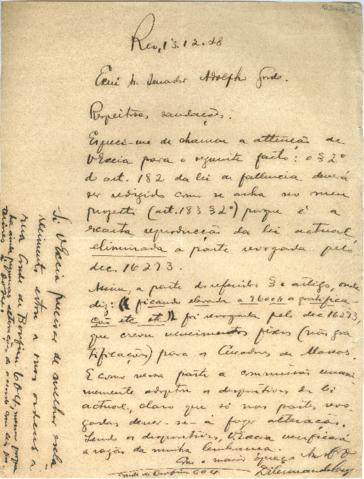 Rio, 13.12.28
Exmo Sr. Senador Adolpho Gordo.
Respeitosas saudações.
Esqueci-me de chamar a attenção de
V Excia para o seguinte facto: o § 2º
do art. 182 da lei de fallencia deverá
ser redigido como se acha no meu
projecto (art. 183 § 2º) porque é a
exacta reproducção da lei actual
eliminada a parte revogada pelo
dec. 16273.
Nessa, a parte do referido § e artigo, onde
diz: (ficando elevada a 7600$ a gratifica
ção etc etc) foi revogada pelo dec 16273,
que creou vencimentos fixos (não gra
tificação) para os Curadores de Massas.
E como nessa parte a commissão unani
memente adoptou os dispositivos da lei
actual, claro que só nas partes revo
gadas dever-se-á fazer alteração.
Lendo os dispositivos, V Excia verificará
a razão da minha lembrança.
Si V Excia precisar de melhor escla
recimento estou a suas ordens a
rua Conde de Bomfim 604
Conde de Bomfim 604